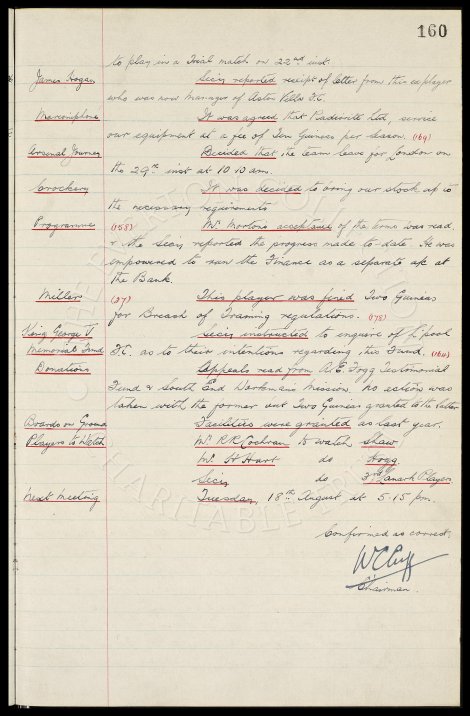 160
to play in a Trial match on 22nd inst.
James Hogan Secy reported receipt of letter from this explayer
who was now manager of Aston Villa F.C.
Marconiphone It was agreed that Ltd, service
our equipment at a fee of Ten Guineas per season. (169)
Arsenal Journey Decided that the team leave for London on
the 29th inst at 10.10 am.
Crockery It was decided to bring our stock up to
the necessary requirements
Programme (158) Mr. Morton's acceptance of the terms was read
& the Secy reported the progress made to date. He was
empowered to run the Finance as a separate a/c at
the Bank.
Miller (37) This player was fined Two Guineas
for Breach of Training regulations. (178)
King George V Secy instructed to enquire of L'pool
Memorial Fund F.C. as to their intentions regarding this Fund. (164)
Donations Appeals read from A.E. Fogg Testimonial
Fund & South End Workmens Mission. No action was
taken with the former but Two Guineas granted to the latter
Boards on Ground Facilities were granted as last year.
Players to Watch Mr. R.R. Cochran to watch Shaw
Mr. H Hart do Hogg
Secy do 3rd Lanark Players
Next Meeting Tuesday, 18th August, at 5.15 pm.
Confirmed as correct,
W C Cuff
Chairman.
CHARITABLE